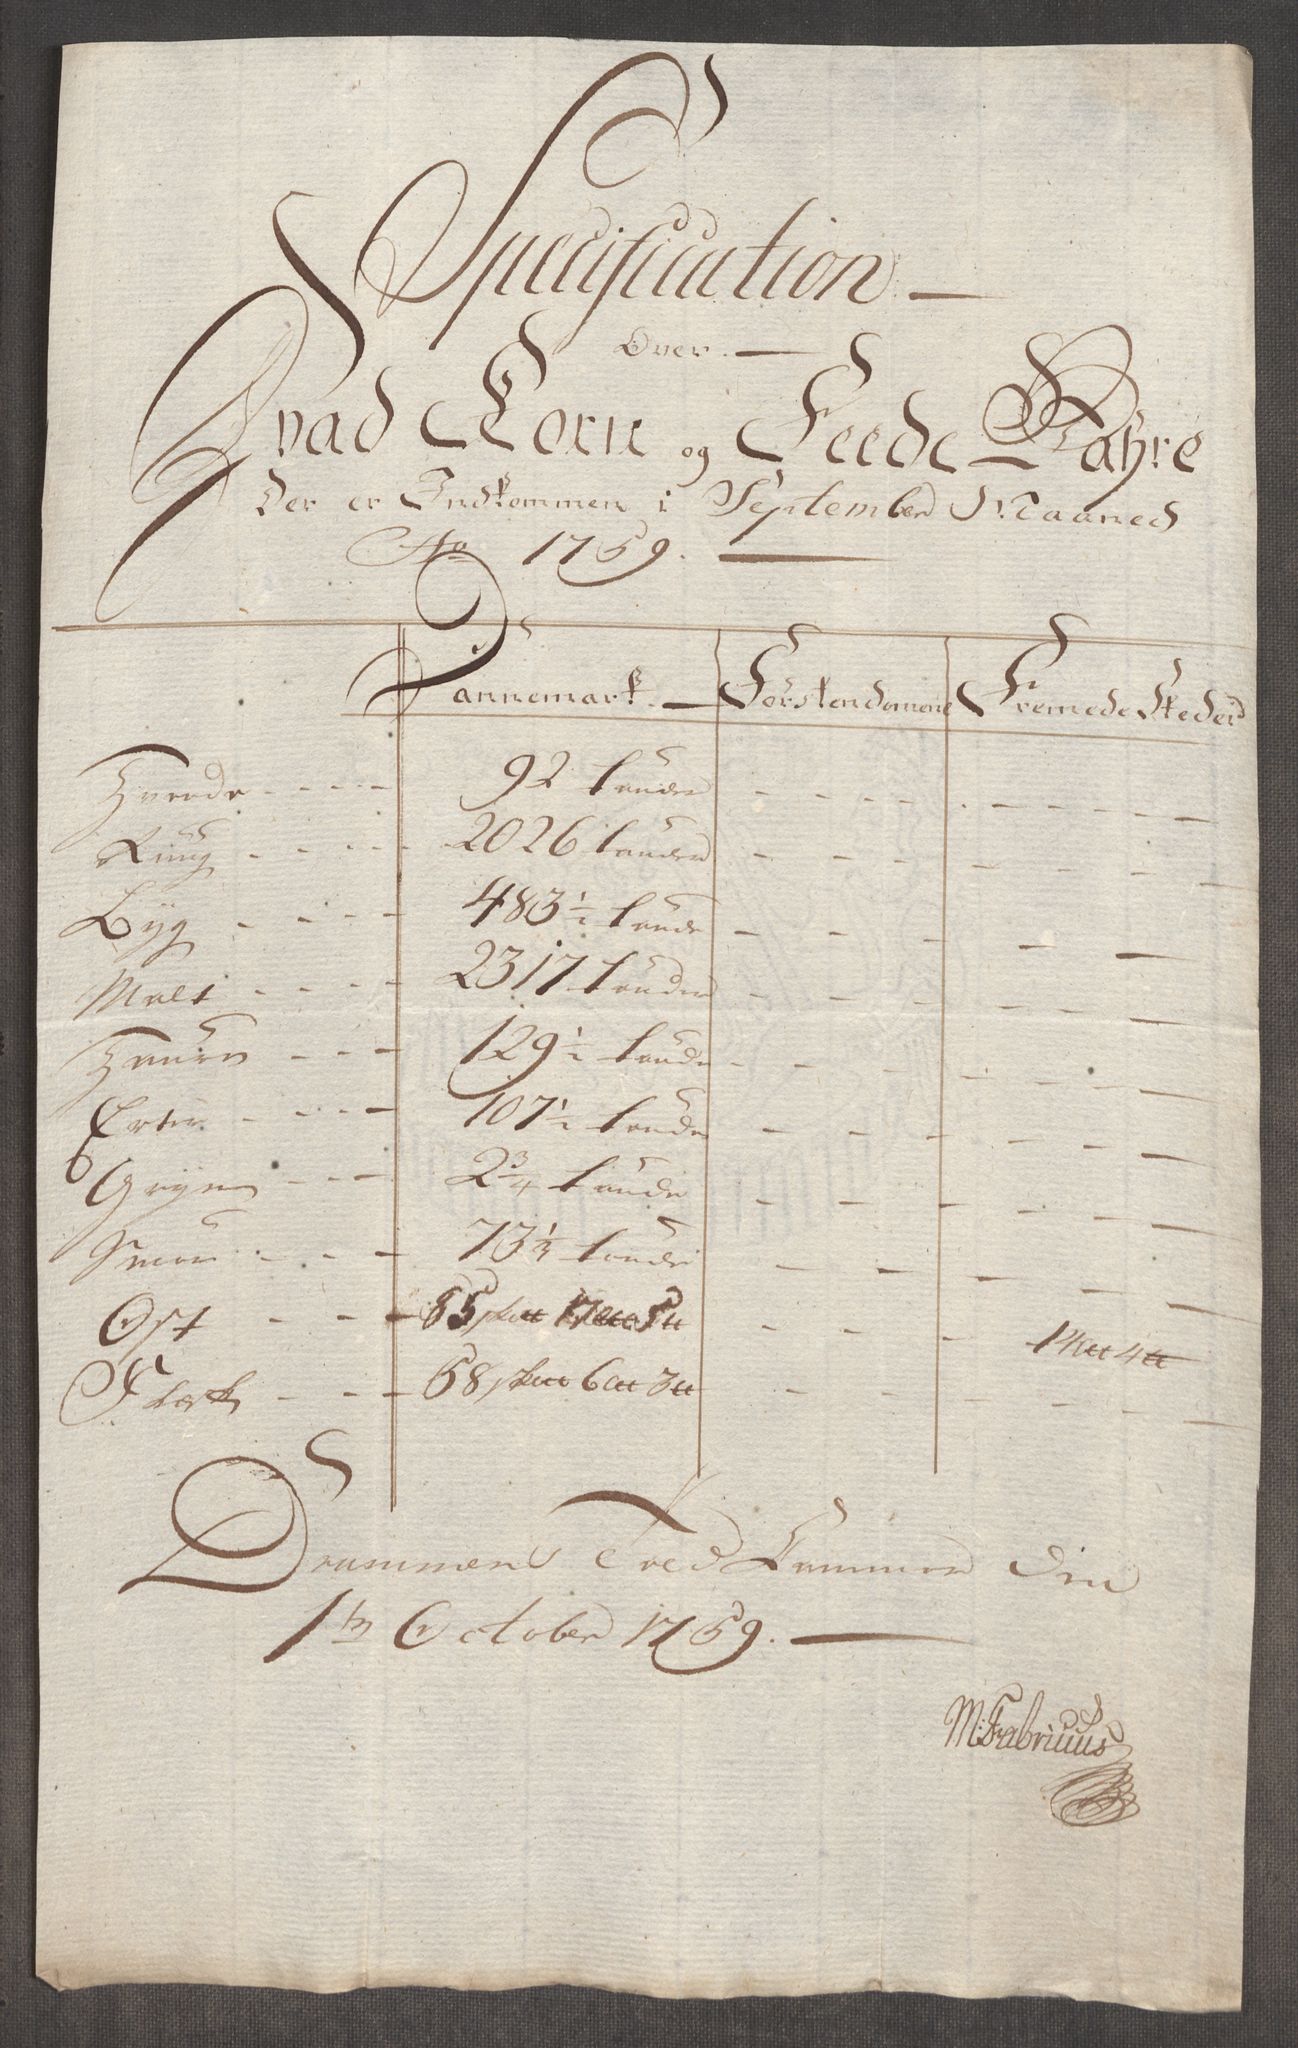 Specification
Over
Hvad Korn og Feede Wahre
der er Indkommen i September Maaned
Ao 1759.
Dannemark Förstendomene Fremede Steder
Hvede 92 tønder
Rüug 2026 tønder
Byg 483 1/2 tønde
Malt 2317 tønder
Haure 129 1/2 tønde
Erter 107 1/2 tønde
Gryn 2 3/4 tønde
Smør 73 1/3 tønde
Ost 85 17 5 4
Flesk 58 6 3
Drammens Told Cammer den
1te October 1759.
M: Fabritius